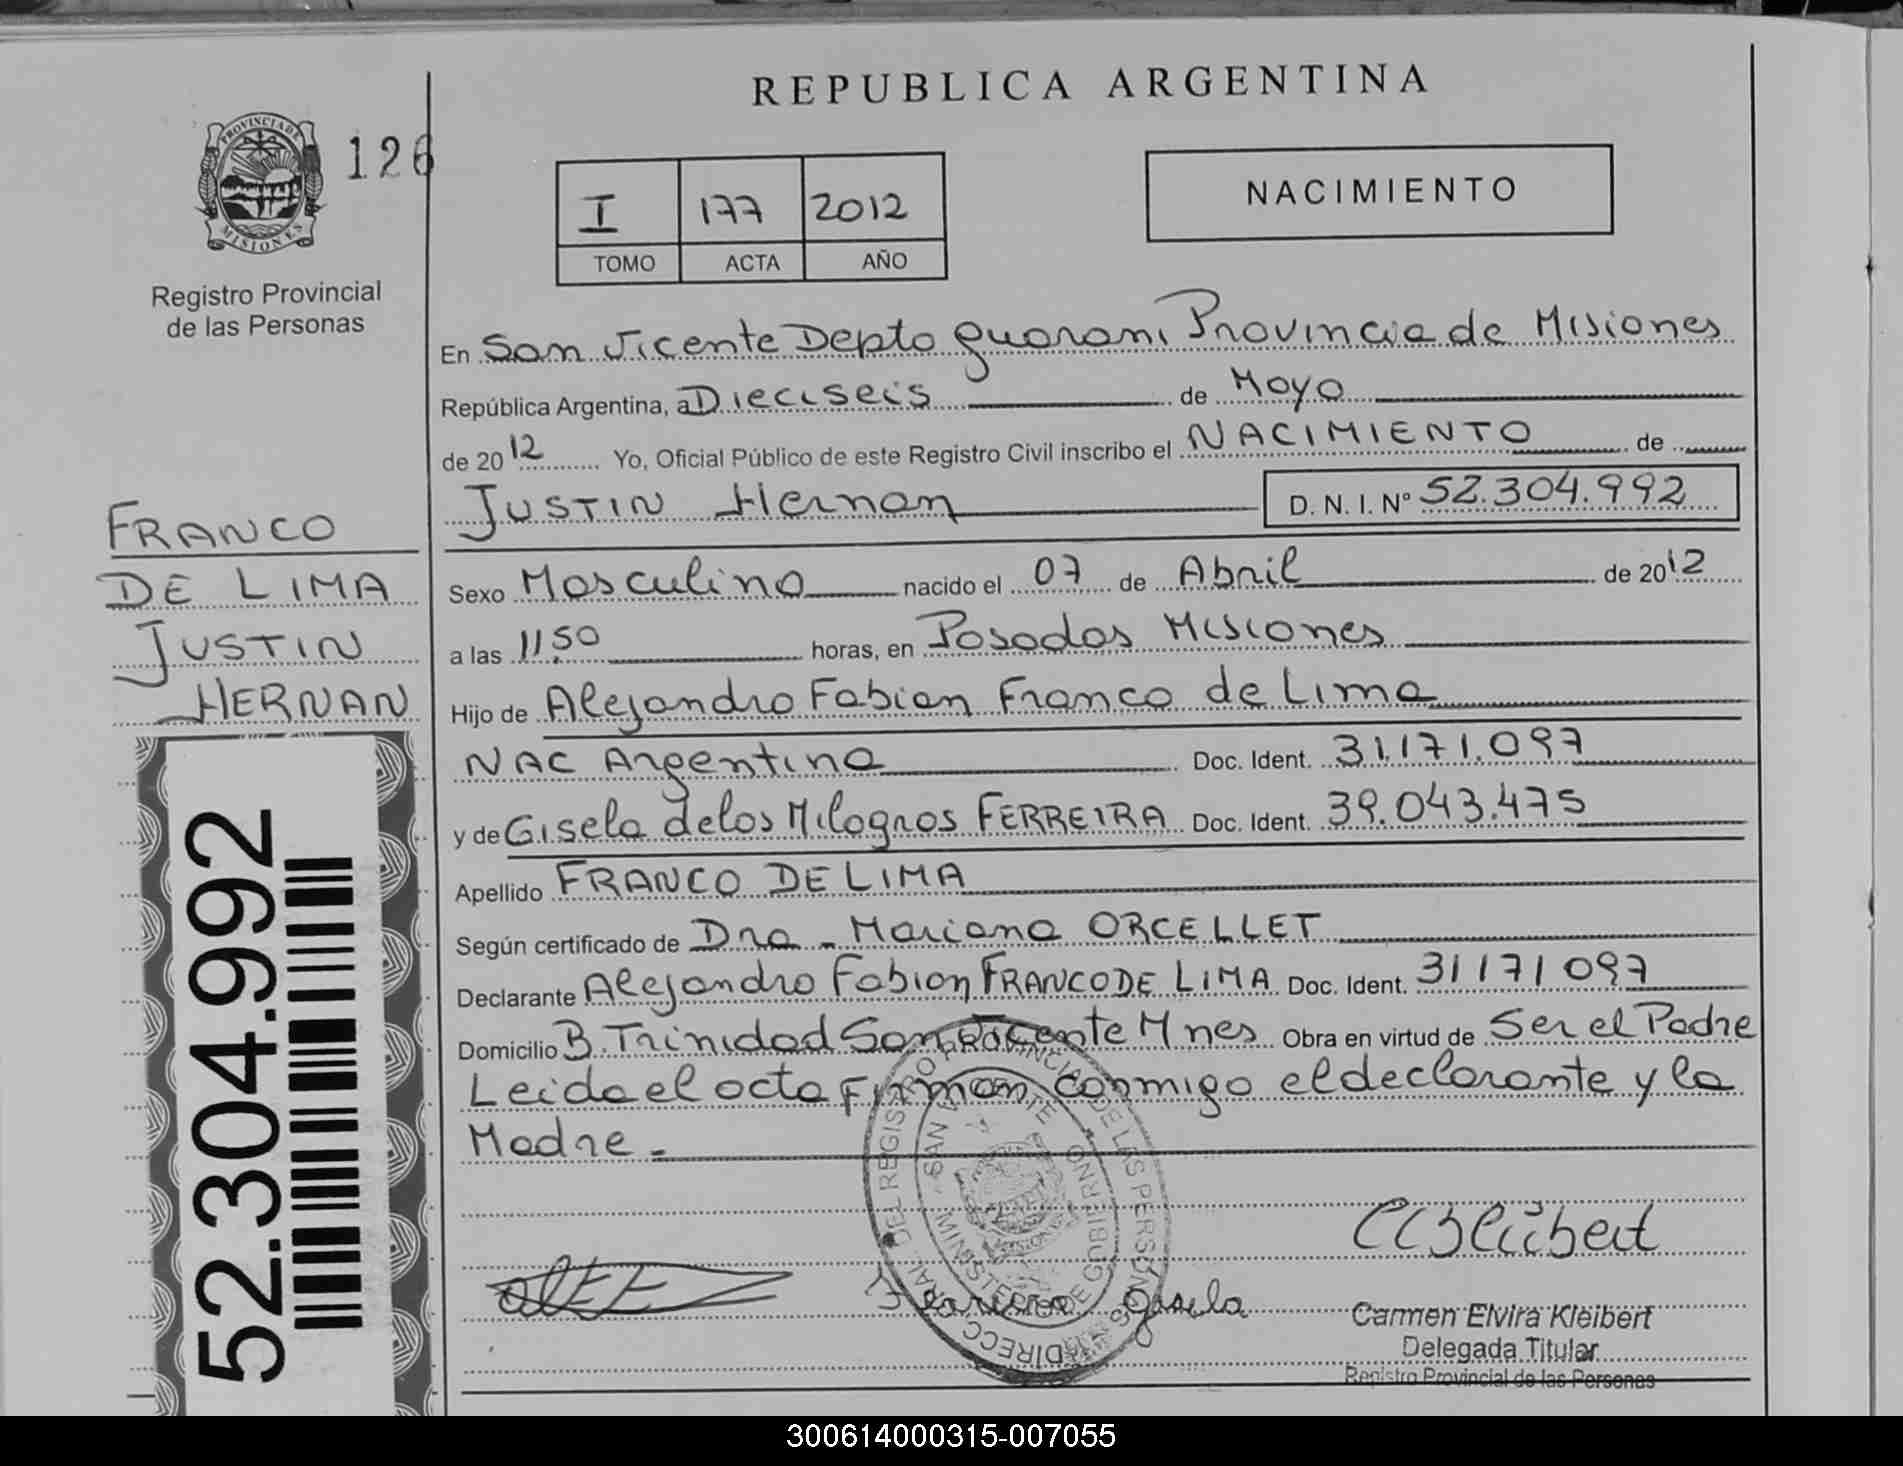 REPUBLICA ARGENTINA
PROVINCIA DE
MISIONES
126
Registro Provincial
de las Personas
I 177 2012
TOMO ACTA AÑO
NACIMIENTO
En San Vicente Depto Guarani Provincia de Misiones
República Argentina, a Dieciseis de Mayo
de 2012 Yo, Oficial Público de este Registro Civil inscribo el NACIMIENTO de
JUSTIN Hernan D. N. I. Nº 52.304.992
FRANCO
DE LIMA
JUSTIN
HERNAN
52.304.992
Sexo Masculino nacido el 07 de Abril de 2012
a las 11.50 horas, en Posadas Misiones
Hijo de Alejandro Fabian Franco de Lima
NAC Argentina Doc. Ident. 31.171.097
y de Gisela de los Milagros FERREIRA Doc. Ident. 39.043.475
Apellido FRANCO DE LIMA
Según certificado de Dra - Mariana ORCELLET
Declarante Alejandro Fabian FRANCO DE LIMA Doc. Ident. 31171097
Domicilio B. Trinidad San Vicente Mnes Obra en virtud de Ser el Padre
Leida el acta Firman conmigo el declarante y la
Madre.-
DIRECC DEL REGISTRO PROVINCIAL DE LAS PERSONAS
SAN VICENTE
MINISTERIO DE GOBIERNO
Gisela
Carmen Elvira Kleibert
Delegada Titular
Registro Provincial de las Personas
300614000315-007055